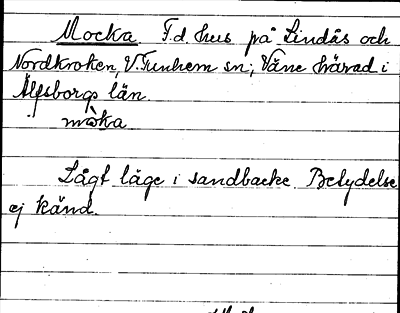 Mocka. F.d. hus på Lindås och
Nordkroken, V. Tunhem sn; Väne härad i
Älfsborgs län.
måka
Lågt läge i sandbacke. Betydelse
ej känd.